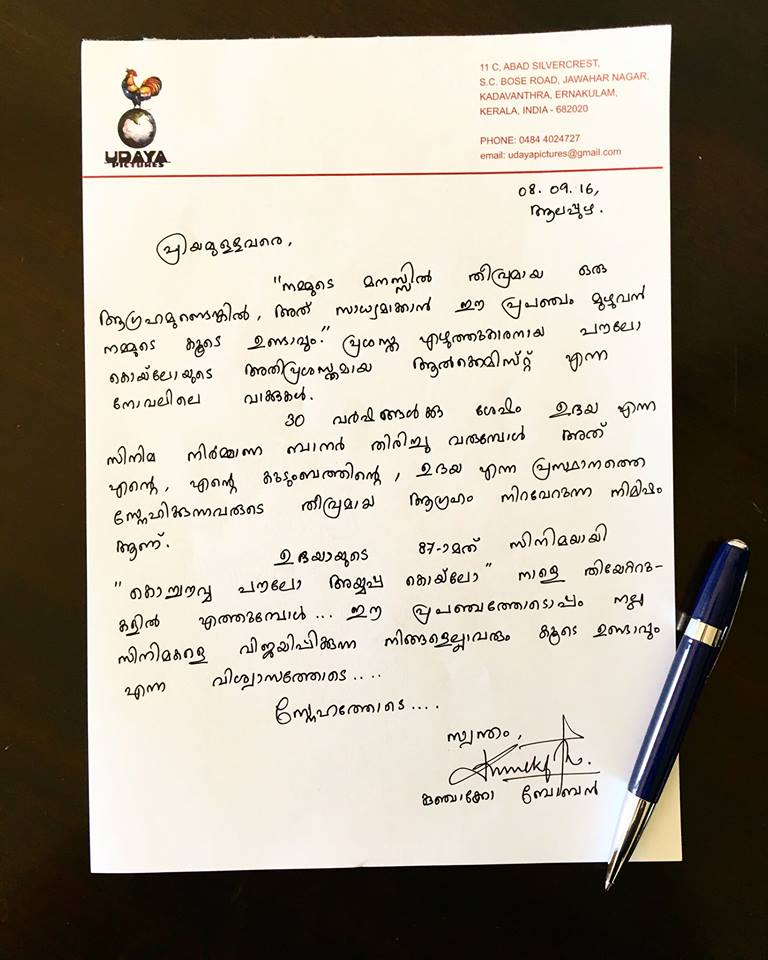 UDAYA
PICTURES
11 C, ABAD SILVERCREST,
S.C. BOSE ROAD, JAWAHAR NAGAR,
KADAVANTHRA, ERNAKULAM,
KERALA, INDIA - 682020
PHONE: 0484 4024727
email: udayapictures@gmail.com
08. 09. 16,
ആലപ്പുഴ.
പ്രിയമുള്ളവരെ,
"നമ്മുടെ മനസ്സിൽ തീവ്രമായ ഒരു
ആഗ്രഹമുണ്ടെങ്കിൽ, അത് സാധ്യമാക്കാൻ ഈ പ്രപഞ്ചം മുഴുവൻ
നമ്മുടെ കൂടെ ഉണ്ടാവും." പ്രശസ്ത എഴുത്തുകാരനായ പൗലോ
കൊയ്‌ലോയുടെ അതിപ്രശസ്തമായ ആൽക്കെമിസ്റ്റ് എന്ന
നോവലിലെ വാക്കുകൾ.
30 വർഷങ്ങൾക്കു ശേഷം ഉദയ എന്ന
സിനിമ നിർമ്മാണ ബാനർ തിരിച്ചു വരുമ്പോൾ അത്
എന്റെ, എന്റെ കുടുംബത്തിന്റെ, ഉദയ എന്ന പ്രസ്ഥാനത്തെ
സ്നേഹിക്കുന്നവരുടെ തീവ്രമായ ആഗ്രഹം നിറവേറുന്ന നിമിഷം
ആണ്.
ഉദയായുടെ 87-ാമത് സിനിമയായി
"കൊച്ചൗവ്വ പൗലോ അയ്യപ്പ കൊയ്‌ലോ" നാളെ തിയേറ്ററു-
കളിൽ എത്തുമ്പോൾ... ഈ പ്രപഞ്ചത്തോടൊപ്പം നല്ല
സിനിമകളെ വിജയിപ്പിക്കുന്ന നിങ്ങളെല്ലാവരും കൂടെ ഉണ്ടാവും
എന്ന വിശ്വാസത്തോടെ....
സ്നേഹത്തോടെ....
സ്വന്തം,
കുഞ്ചാക്കോ ബോബൻ